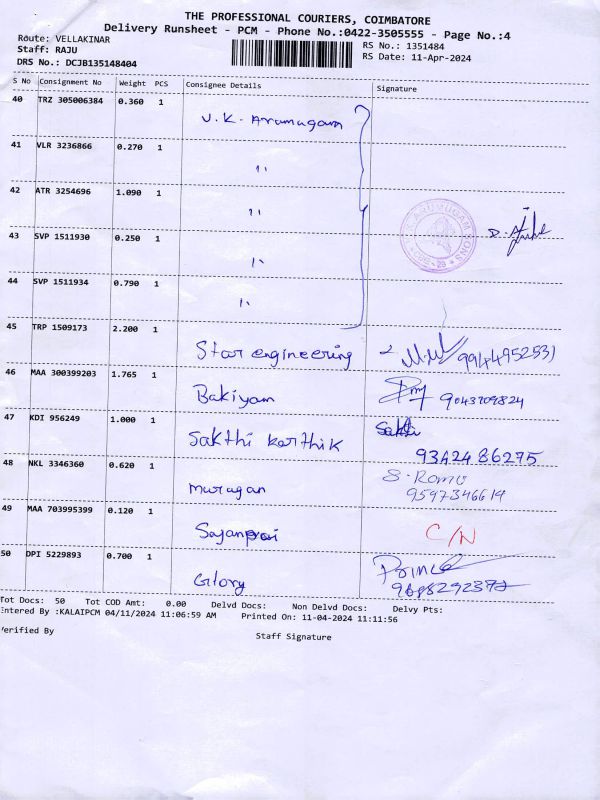 THE PROFESSIONAL COURIERS, COIMBATORE
Delivery Runsheet - PCM - Phone No.:0422-3505555 - Page No.:4
Route: VELLAKINAR
Staff: RAJU
RS No.: 1351484
DRS No.: DCJB135148404
RS Date: 11-Apr-2024
S No Consignment No Weight PCS Consignee Details Signature
40 TRZ 305006384 0.360 1 V. K. Arumugam
41 VLR 3236866 0.270 1 ''
42 ATR 3254696 1.090 1 ''
43 SVP 1511930 0.250 1 ''
44 SVP 1511934 0.790 1 ''
45 TRP 1509173 2.200 1 Star engineering
46 MAA 300399203 1.765 1 Bakiyam 9043709824
47 KDI 956249 1.000 1 Sakthi karthik Sakthi
9342486275
48 NKL 3346360 0.620 1 murugan S. Romu
9597346614
49 MAA 703995399 0.120 1 C/N
50 DPI 5229893 0.700 1 Glory Prince
Tot Docs: 50 Tot COD Amt: 0.00 Delvd Docs: Non Delvd Docs: Delvy Pts:
Entered By :KALAIPCM 04/11/2024 11:06:59 AM Printed On: 11-04-2024 11:11:56
Verified By Staff Signature